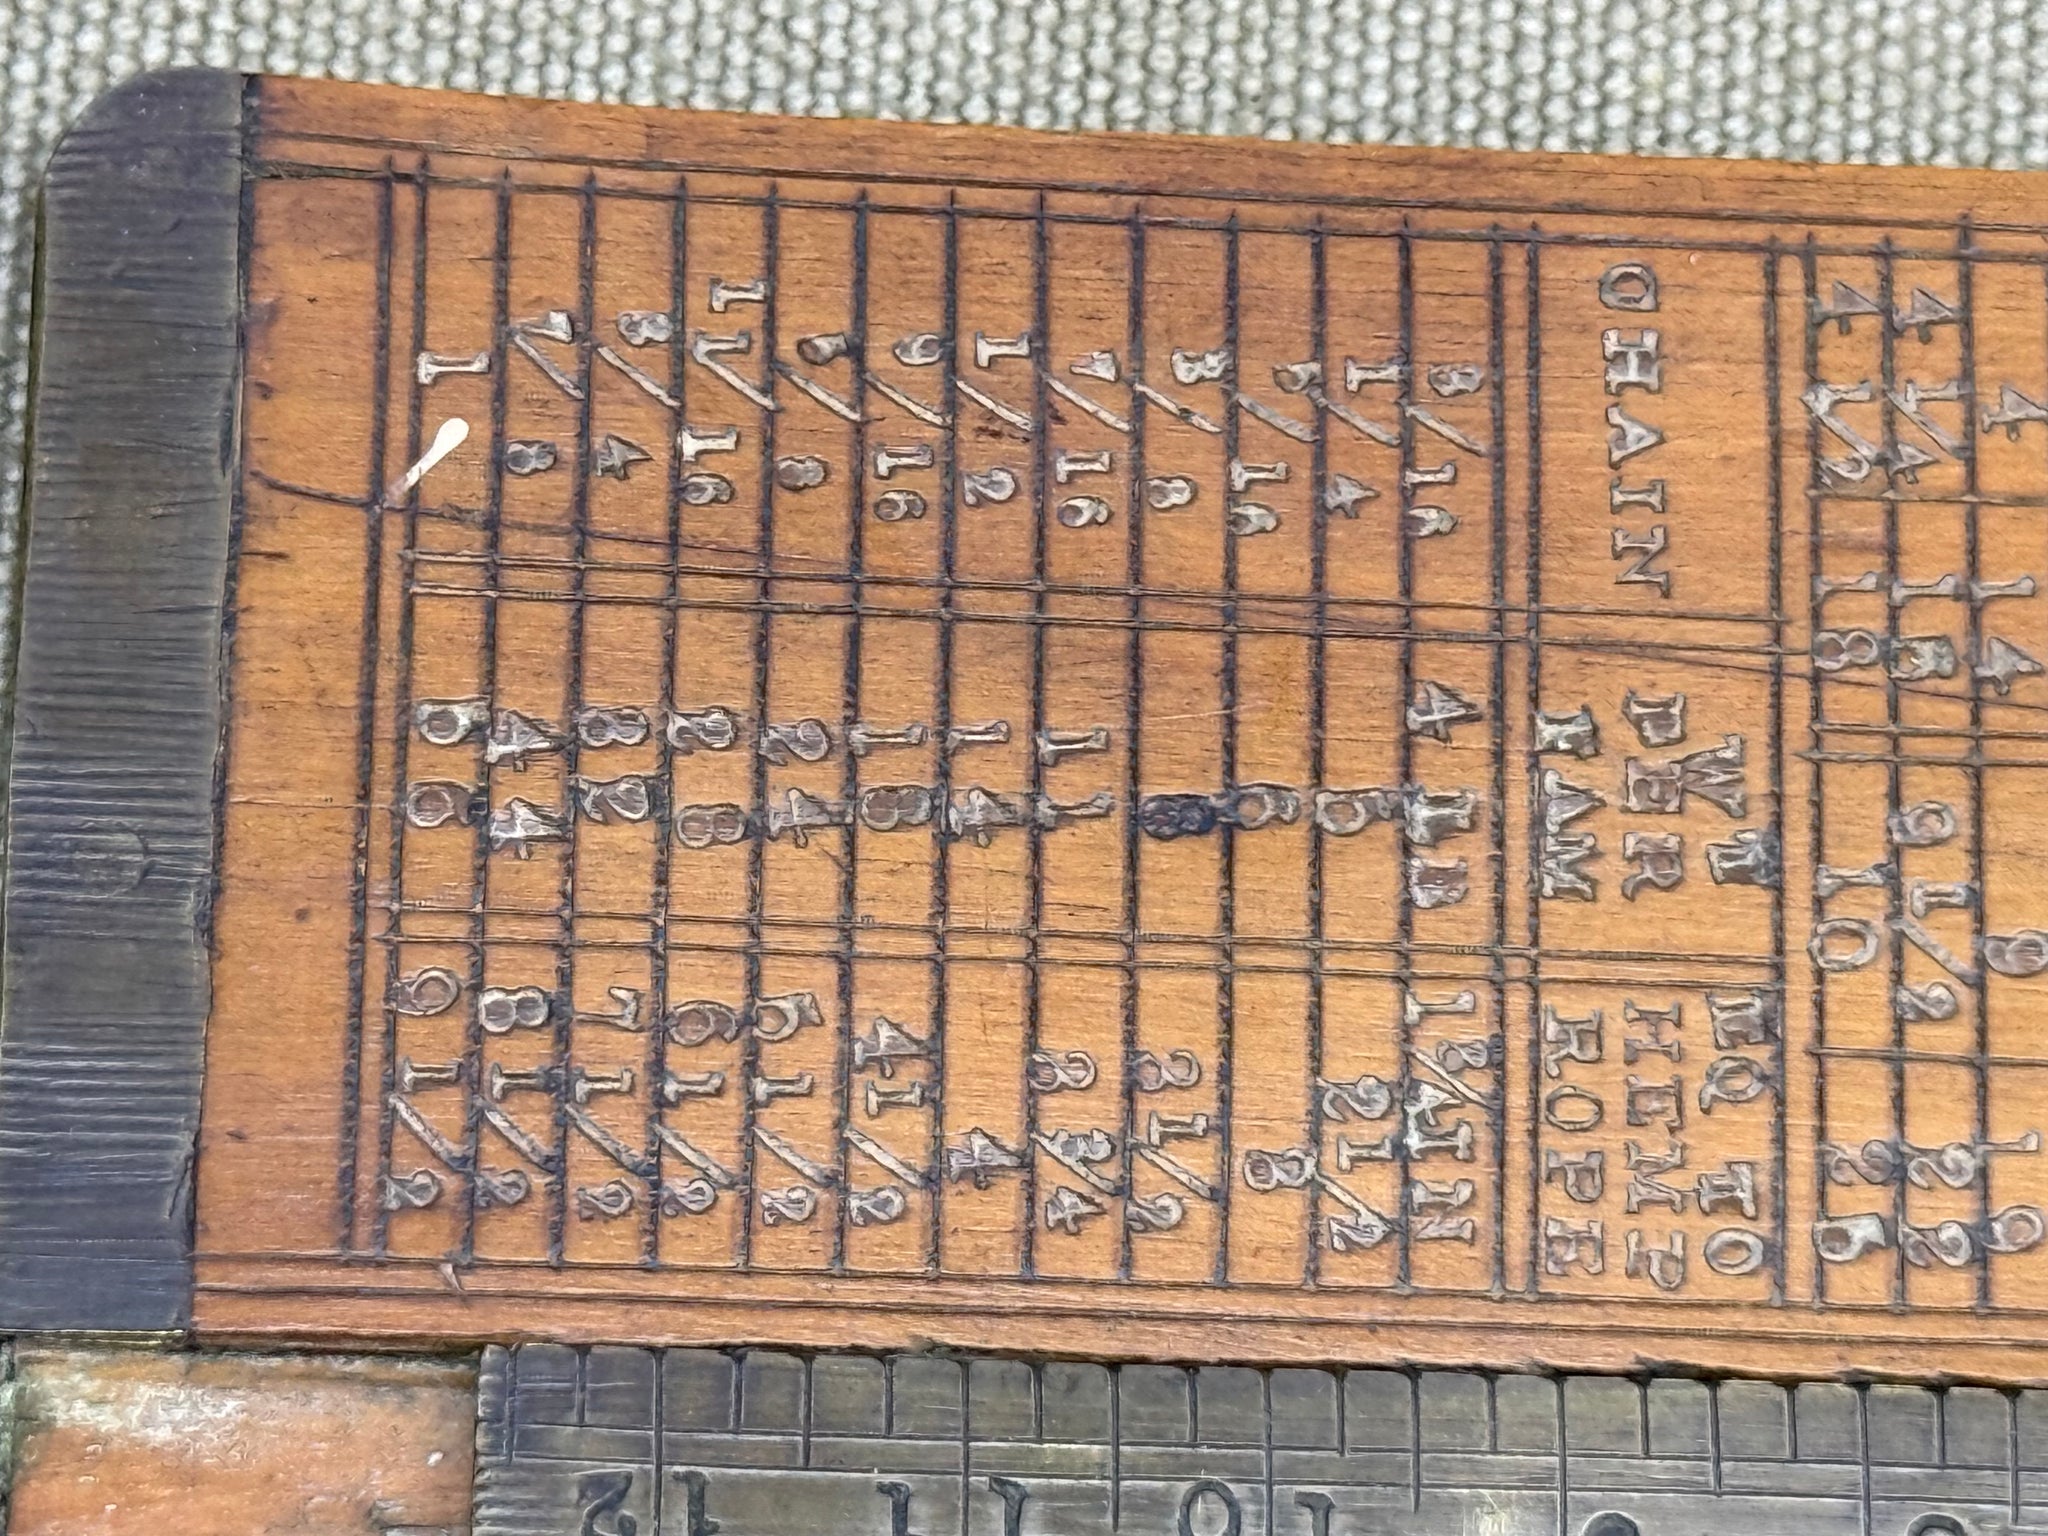 4 1/2 18 10 25
CHAIN WT PER FAM EQ TO HEMP ROPE
3/16 4 LB 1 3/4 IN
1/4 6 2 1/2
5/16 3
3/8 8 3 1/2
7/16 11 3 3/4
1/2 14 4
9/16 18 4 1/2
5/8 24 5 1/2
11/16 28 6 1/2
3/4 32 7 1/2
7/8 44 8 1/2
1 56 9 1/2
12 11 10